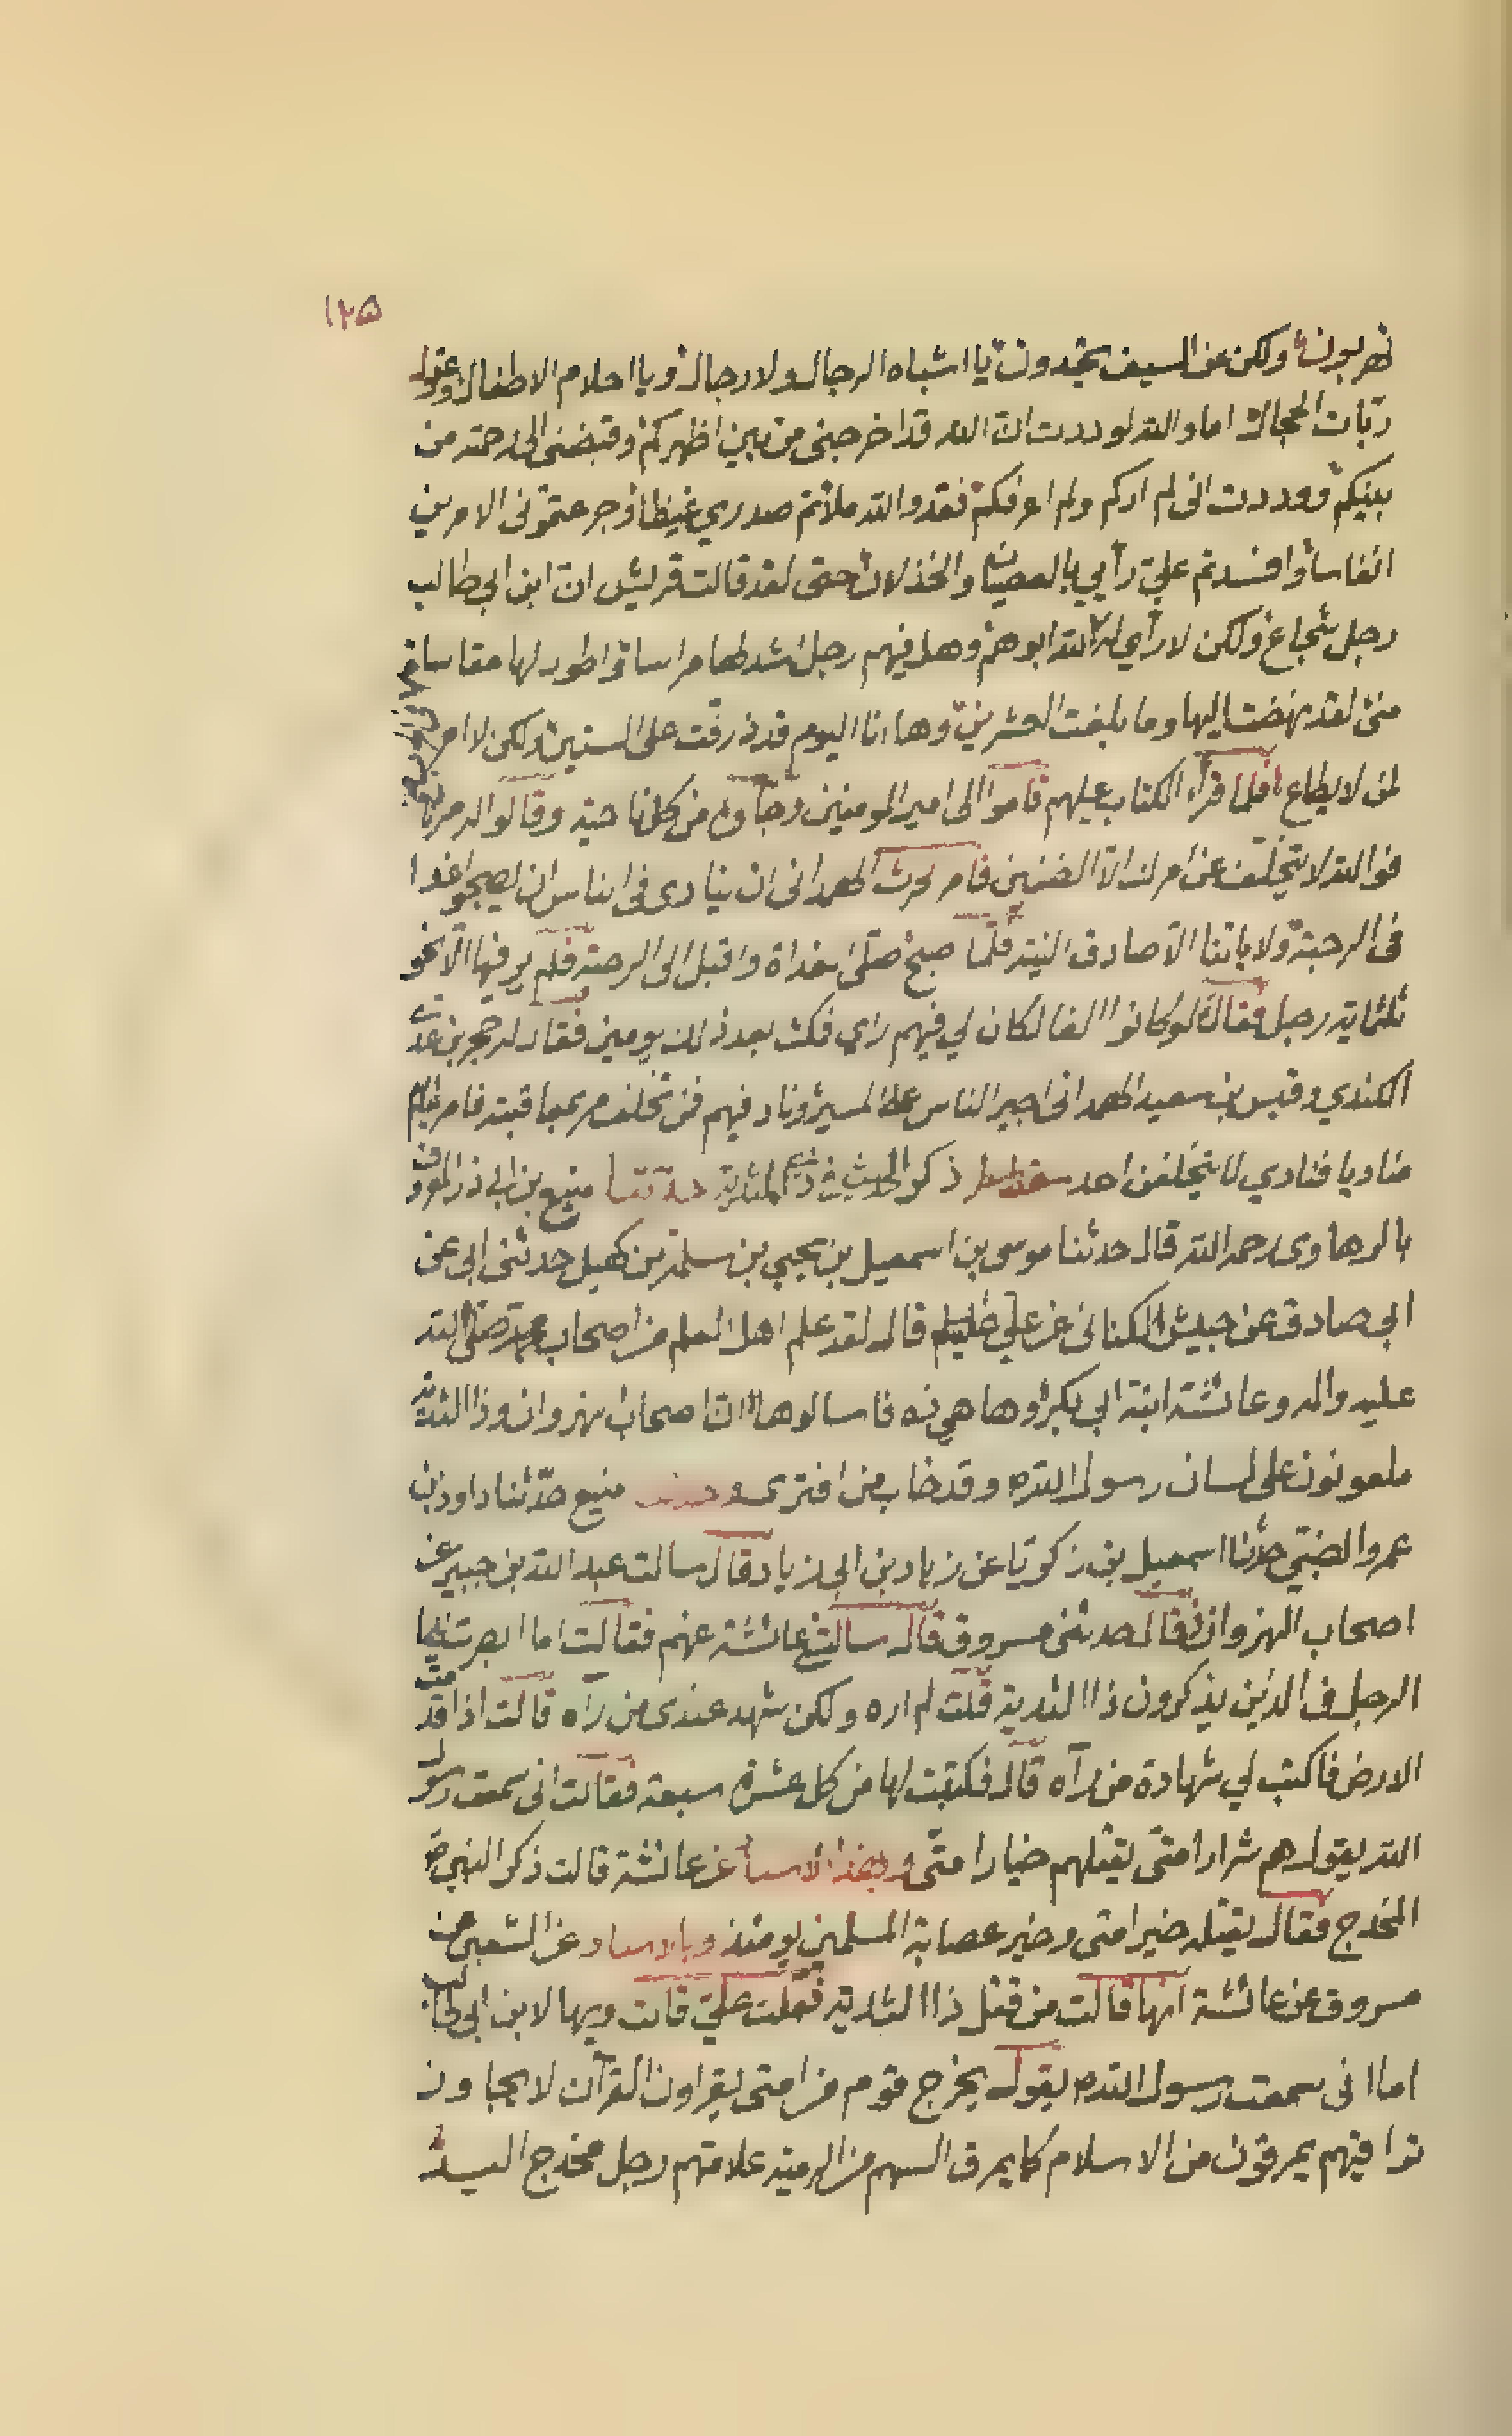 ١٢٥
تهربون ولكن عن السيف تحيدون يا اشباه الرجال ولا رجال ويا احلام الاطفال وعقول
ربّات الحجال اما والله لوددت انّ الله قد اخرجنى من بين اظهركم وقبضنى الى رحمته من
بينكم ووددت انى لم اركم ولم اعرفكم فقد والله ملأتم صدري غيظا وجرعتمونى الامرين
انفاسا وافسدتم عليّ رأيي بالعصيان والخذلان حتى لقد قالت قريش انّ ابن ابى طالب
رجل شجاع ولكن لا رأي له لله ابوهم وهل فيهم رجل اشد لها مراسا واطول لها مقاساة
منى لقد نهضت اليها وما بلغت العشرين وها انا اليوم قد ذرفت على الستين ولكن لا امر
لمن لا يطاع فلما قرأ الكتاب عليهم قاموا الى امير المومنين وجاؤه من كل ناحية وقالوا
فوالله لا يتخلف عن امرك الّا الضنين فامر لحرث الهمدانى ان ينادى فى الناس ان يصبحوا غدا
فى الرحبة ولا ياتنا الّا صادق النية فلمّا صبح صلى الغداة واقبل الى الرحبة فلم ير فيها الّا نحو
ثلثماية رجل فقال لو كانوا الفا لكان لي فيهم راي فمكث بعد ذلك يومين فقال له حجر بن عدى
الكندي وقيس بن سعيد الهمدانى اجبر الناس على المسير وناد فيهم فمن تخلف مر بمعاقبته فامر
مناديا فنادي لا يتخلفن احد ذكر الحديث فى ذي الثدية حدثنا منيع بن ابى ذر المعروف
بالرهاوى رحمه الله قال حدثنا موسى بن اسمعيل بن يحيي بن سلمة بن كهيل حدثنى ابى عن
ابى صادق عن حبيش الكنانى عن علي قال لقد علم اهل العلم من اصحاب محمد صلى الله
عليه واله وعائشة ابنة ابي بكر وها هي ذه فاسالوها انّ اصحاب نهروان وذا الثدية
ملعونون على لسان رسول الله ص وقد خاب من افترى منيع حدّثنا داود بن
عمرو الضبّي حدثنا اسمعيل بن زكريّا عن زياد بن ابى زياد قال سالت عبد الله بن جبير عن
اصحاب النهروان فقال حدثنى مسروق قال سالتنى عائشة عنهم فقالت اما ابصرت
الرجل الذين يذكرون ذا الثدية قلت لم اره ولكن شهد عندى من رآه قالت اذا قدمت
الارض فاكتب لي شهادة من رآه قال فكتبت لها من كل عشرة سبعة فقالت انى سمعت رسول
الله يقول هم شرار امتى يقتلهم خيار امتى وبهذا الاسناد عن عائشة قالت ذكر النبى ص
المخدج فقال يقتله خير امتى وخير عصابة المسلمين يومئذ وبالاسناد عن الشعبى عن
مسروق عن عائشة انها قالت من قتل ذا الثدية فقلت عليّ قالت ويها لابن ابى طالب
اما انى سمعت رسول الله ص يقول يخرج قوم من امتى يقراون القرآن لا يجاوز
تراقيهم يمرقون من الاسلام كما يمرق السهم من الرمية علامتهم رجل مخدج اليد